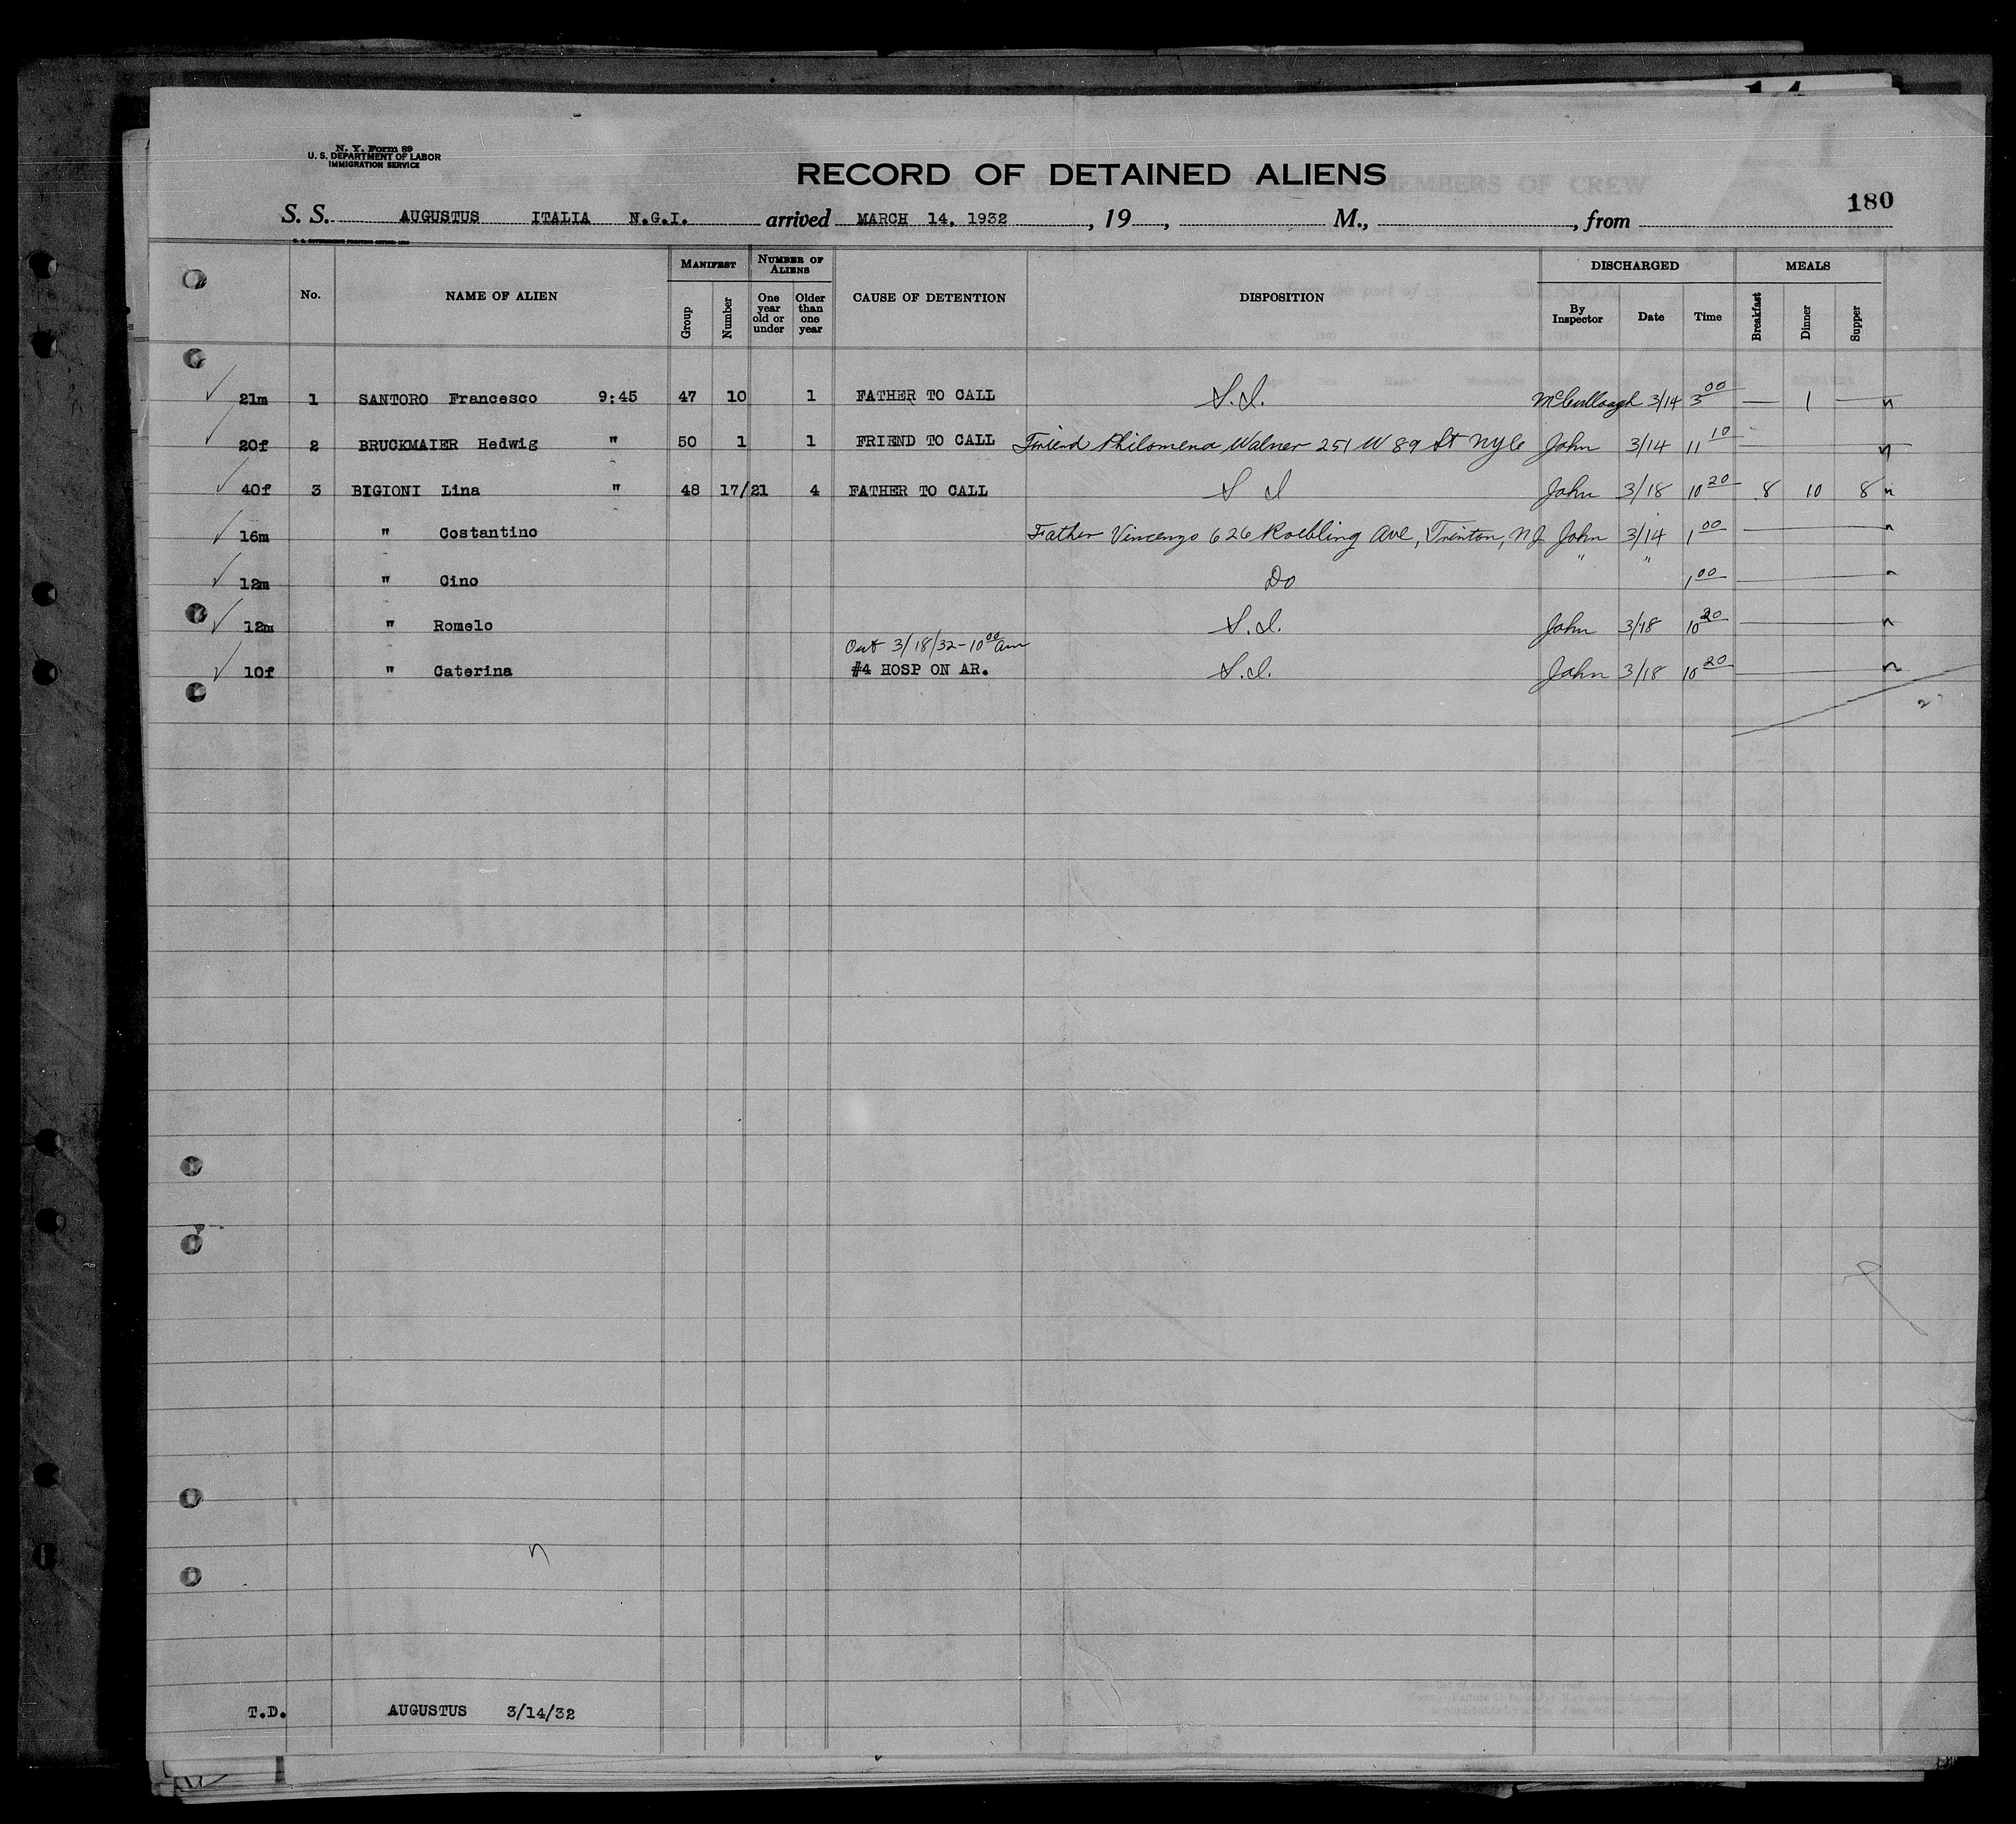 N. Y. Form 89
U. S. DEPARTMENT OF LABOR
IMMIGRATION SERVICE
RECORD OF DETAINED ALIENS
180
S. S. AUGUSTUS ITALIA N.G.I. arrived MARCH 14, 1932, 19 , M., , from
No. NAME OF ALIEN MANIFEST Group Number NUMBER OF ALIENS One year old or under Older than one year CAUSE OF DETENTION DISPOSITION DISCHARGED By Inspector Date Time MEALS Breakfast Dinner Supper
21m 1 SANTORO Francesco 9:45 47 10 1 FATHER TO CALL S.I. McCullough 3/14 3 00 — 1 — n
20f 2 BRUCKMAIER Hedwig " 50 1 1 FRIEND TO CALL Friend Philomena Walner 251 W 89 St NYC John 3/14 11 10 n
40f 3 BIGIONI Lina " 48 17/21 4 FATHER TO CALL S I John 3/18 10 20 8 10 8 n
16m " Costantino Father Vincenzo 626 Roebling Ave, Trenton, NJ John 3/14 1 00
12m " Gino Do " " 1 00
12m " Romelo S.I. John 3/18 10 20 n
Out 3/18/32-10 00 am
10f " Caterina #4 HOSP ON AR. S.I. John 3/18 10 20 n
2
n
T.D. AUGUSTUS 3/14/32